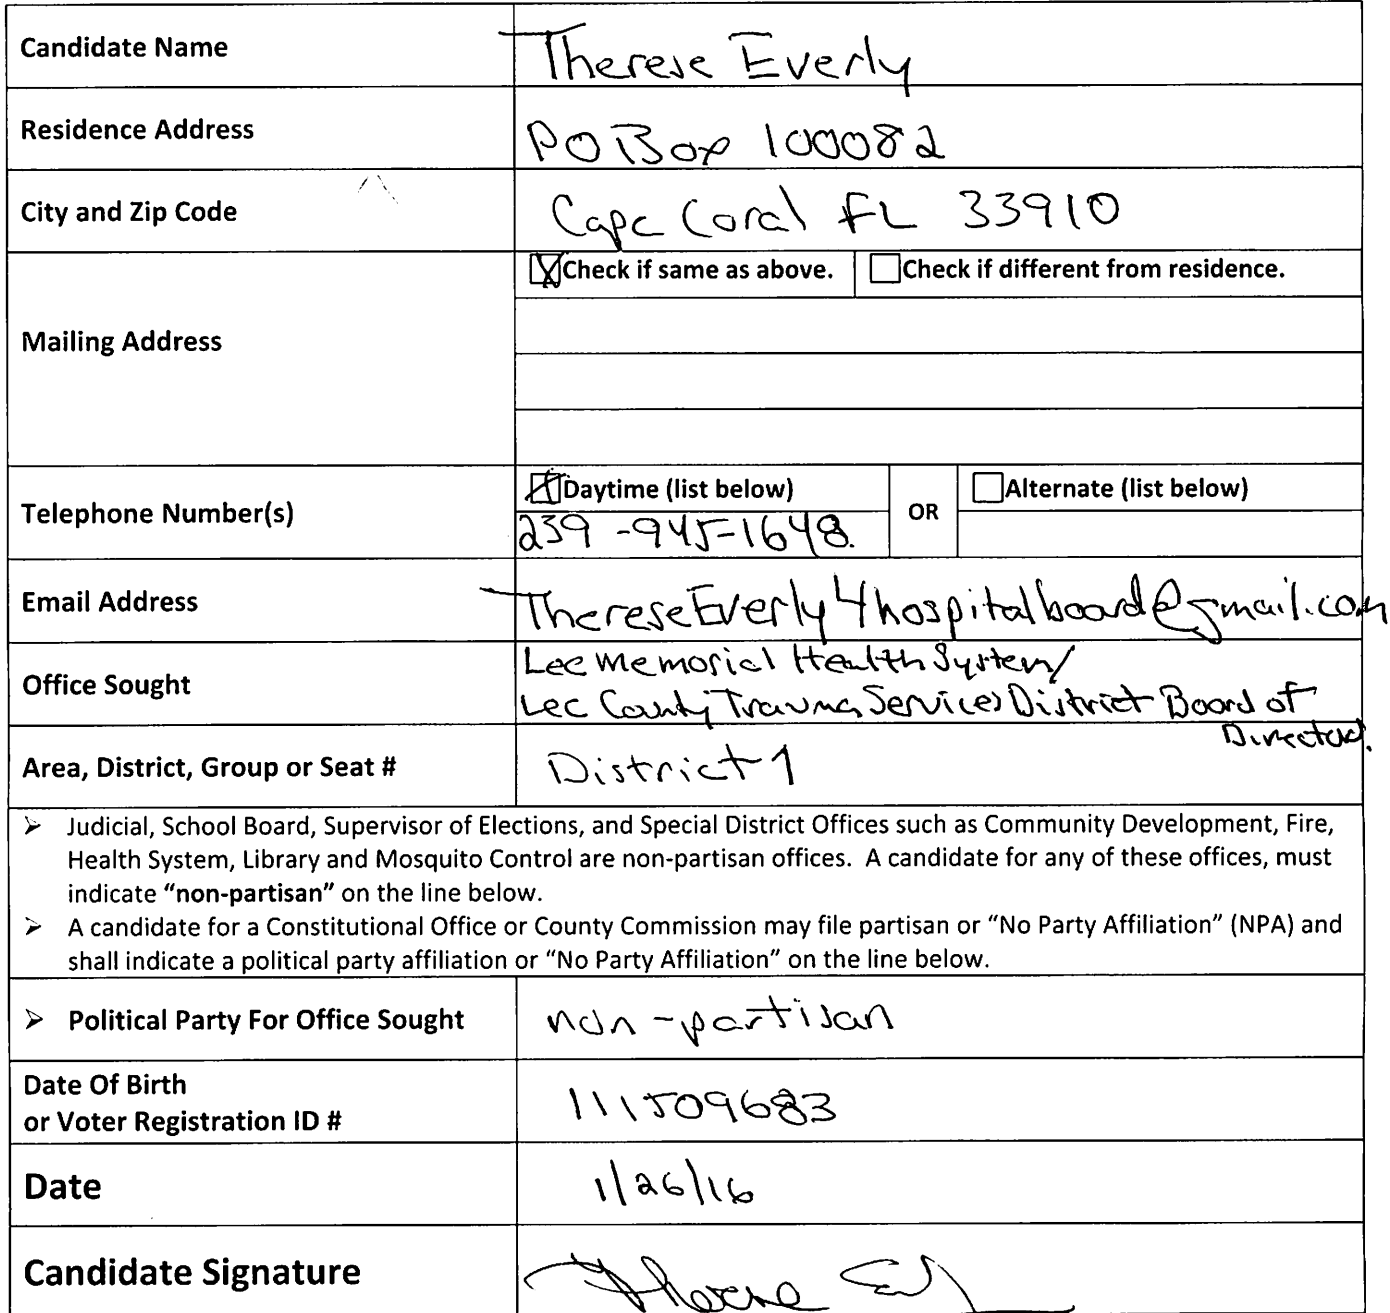 Candidate Name Therese Everly
Residence Address PO Box 100082
City and Zip Code Cape Coral FL 33910
Check if same as above. Check if different from residence.
Mailing Address
Daytime (list below) Alternate (list below)
Telephone Number(s) OR
239-945-1648
Email Address ThereseEverly4hospitalboard@gmail.com
Lee Memorial Health System/
Office Sought
Lee County Trauma Services District Board of
Directors.
Area, District, Group or Seat # District 1
➢ Judicial, School Board, Supervisor of Elections, and Special District Offices such as Community Development, Fire,
Health System, Library and Mosquito Control are non-partisan offices. A candidate for any of these offices, must
indicate "non-partisan" on the line below.
➢ A candidate for a Constitutional Office or County Commission may file partisan or "No Party Affiliation" (NPA) and
shall indicate a political party affiliation or "No Party Affiliation" on the line below.
➢ Political Party For Office Sought non-partisan
Date Of Birth
or Voter Registration ID # 111509683
Date 1/26/16
Candidate Signature